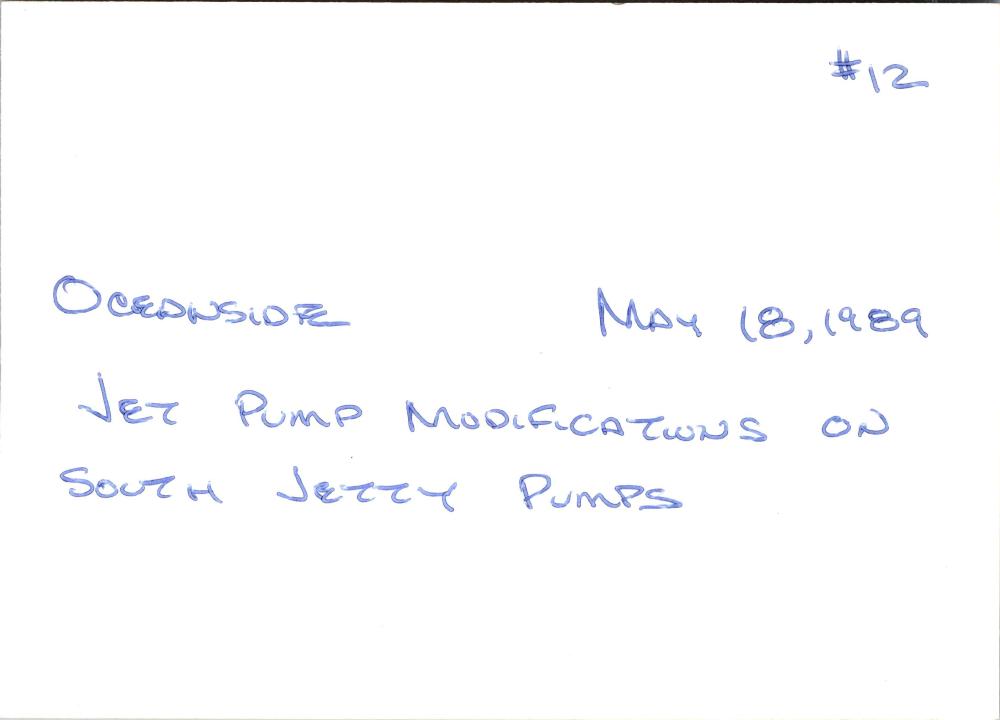 #12
Oceanside May 18, 1989
Jet Pump Modifications on
South Jetty Pumps